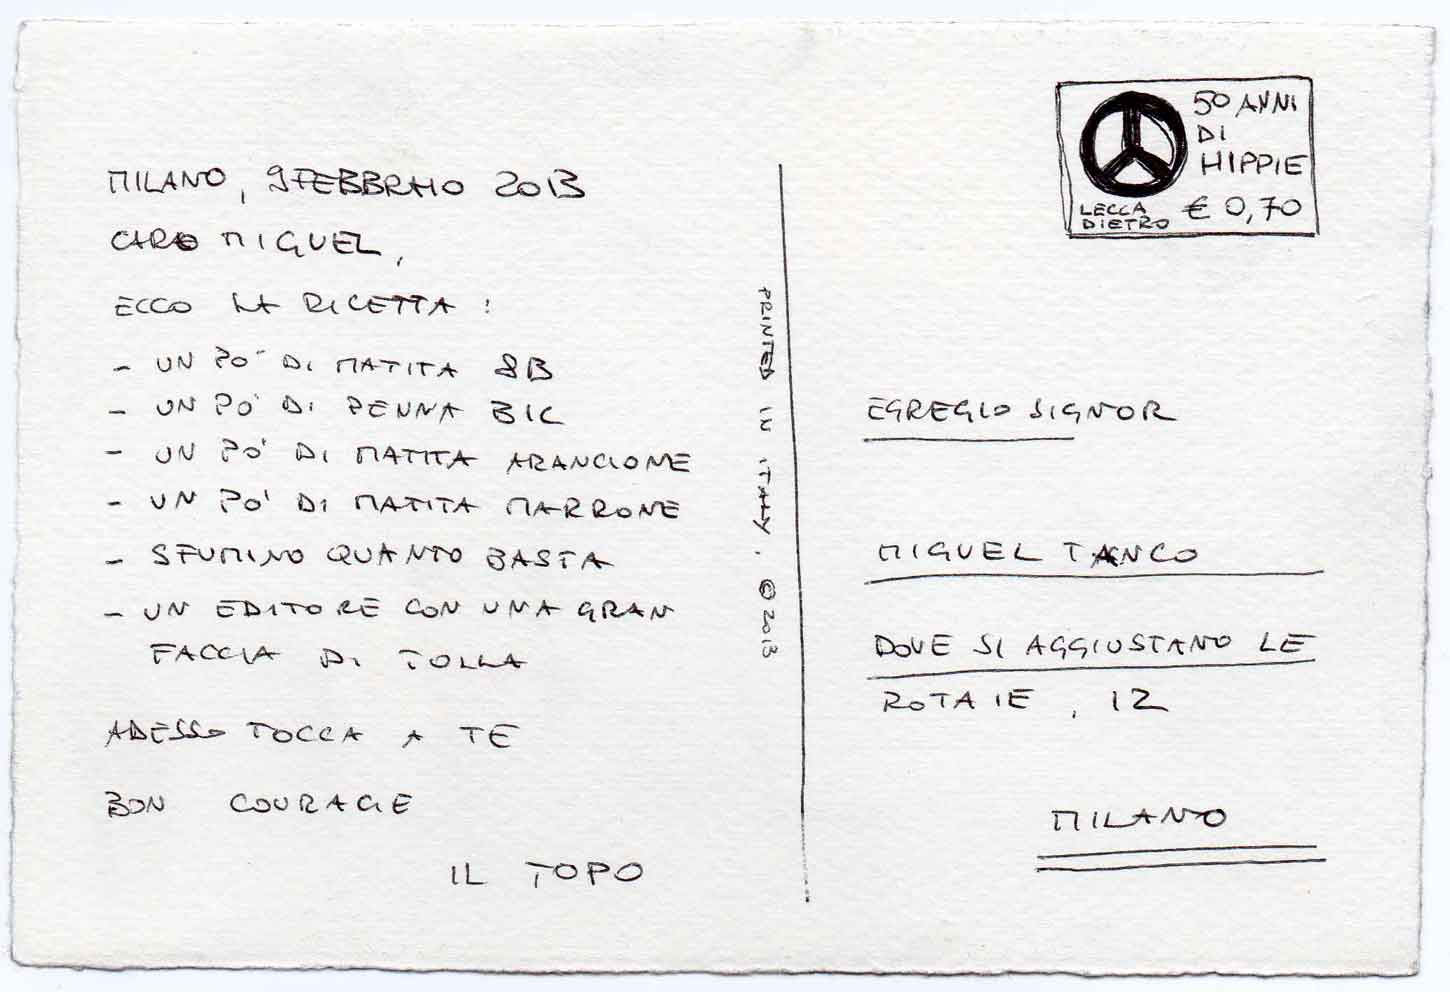 MILANO, 9 FEBBRAIO 2013
CARO MIGUEL,
ECCO LA RICETTA:
- UN PO' DI MATITA 8B
- UN PO' DI PENNA BIC
- UN PO' DI MATITA ARANCIONE
- UN PO' DI MATITA MARRONE
- SFUMINO QUANTO BASTA
- UN EDITORE CON UNA GRAN
FACCIA DI TOLLA
ADESSO TOCCA A TE
BON COURAGE
IL TOPO
PRINTED IN ITALY. © 2013
50 ANNI
DI
HIPPIE
€ 0,70
LECCA
DIETRO
EGREGIO SIGNOR
MIGUEL TANCO
DOVE SI AGGIUSTANO LE
ROTAIE, 12
MILANO